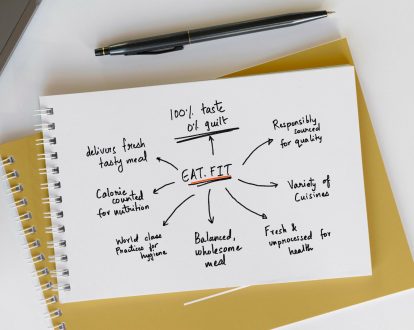 100% taste
0% guilt
delivers fresh
tasty meal
Responsibly
sourced
for quality
EAT.FIT
Calorie
counted
for nutrition
Variety of
Cuisines
World class
Practices for
hygiene
Balanced,
wholesome
meal
Fresh &
unprocessed for
health